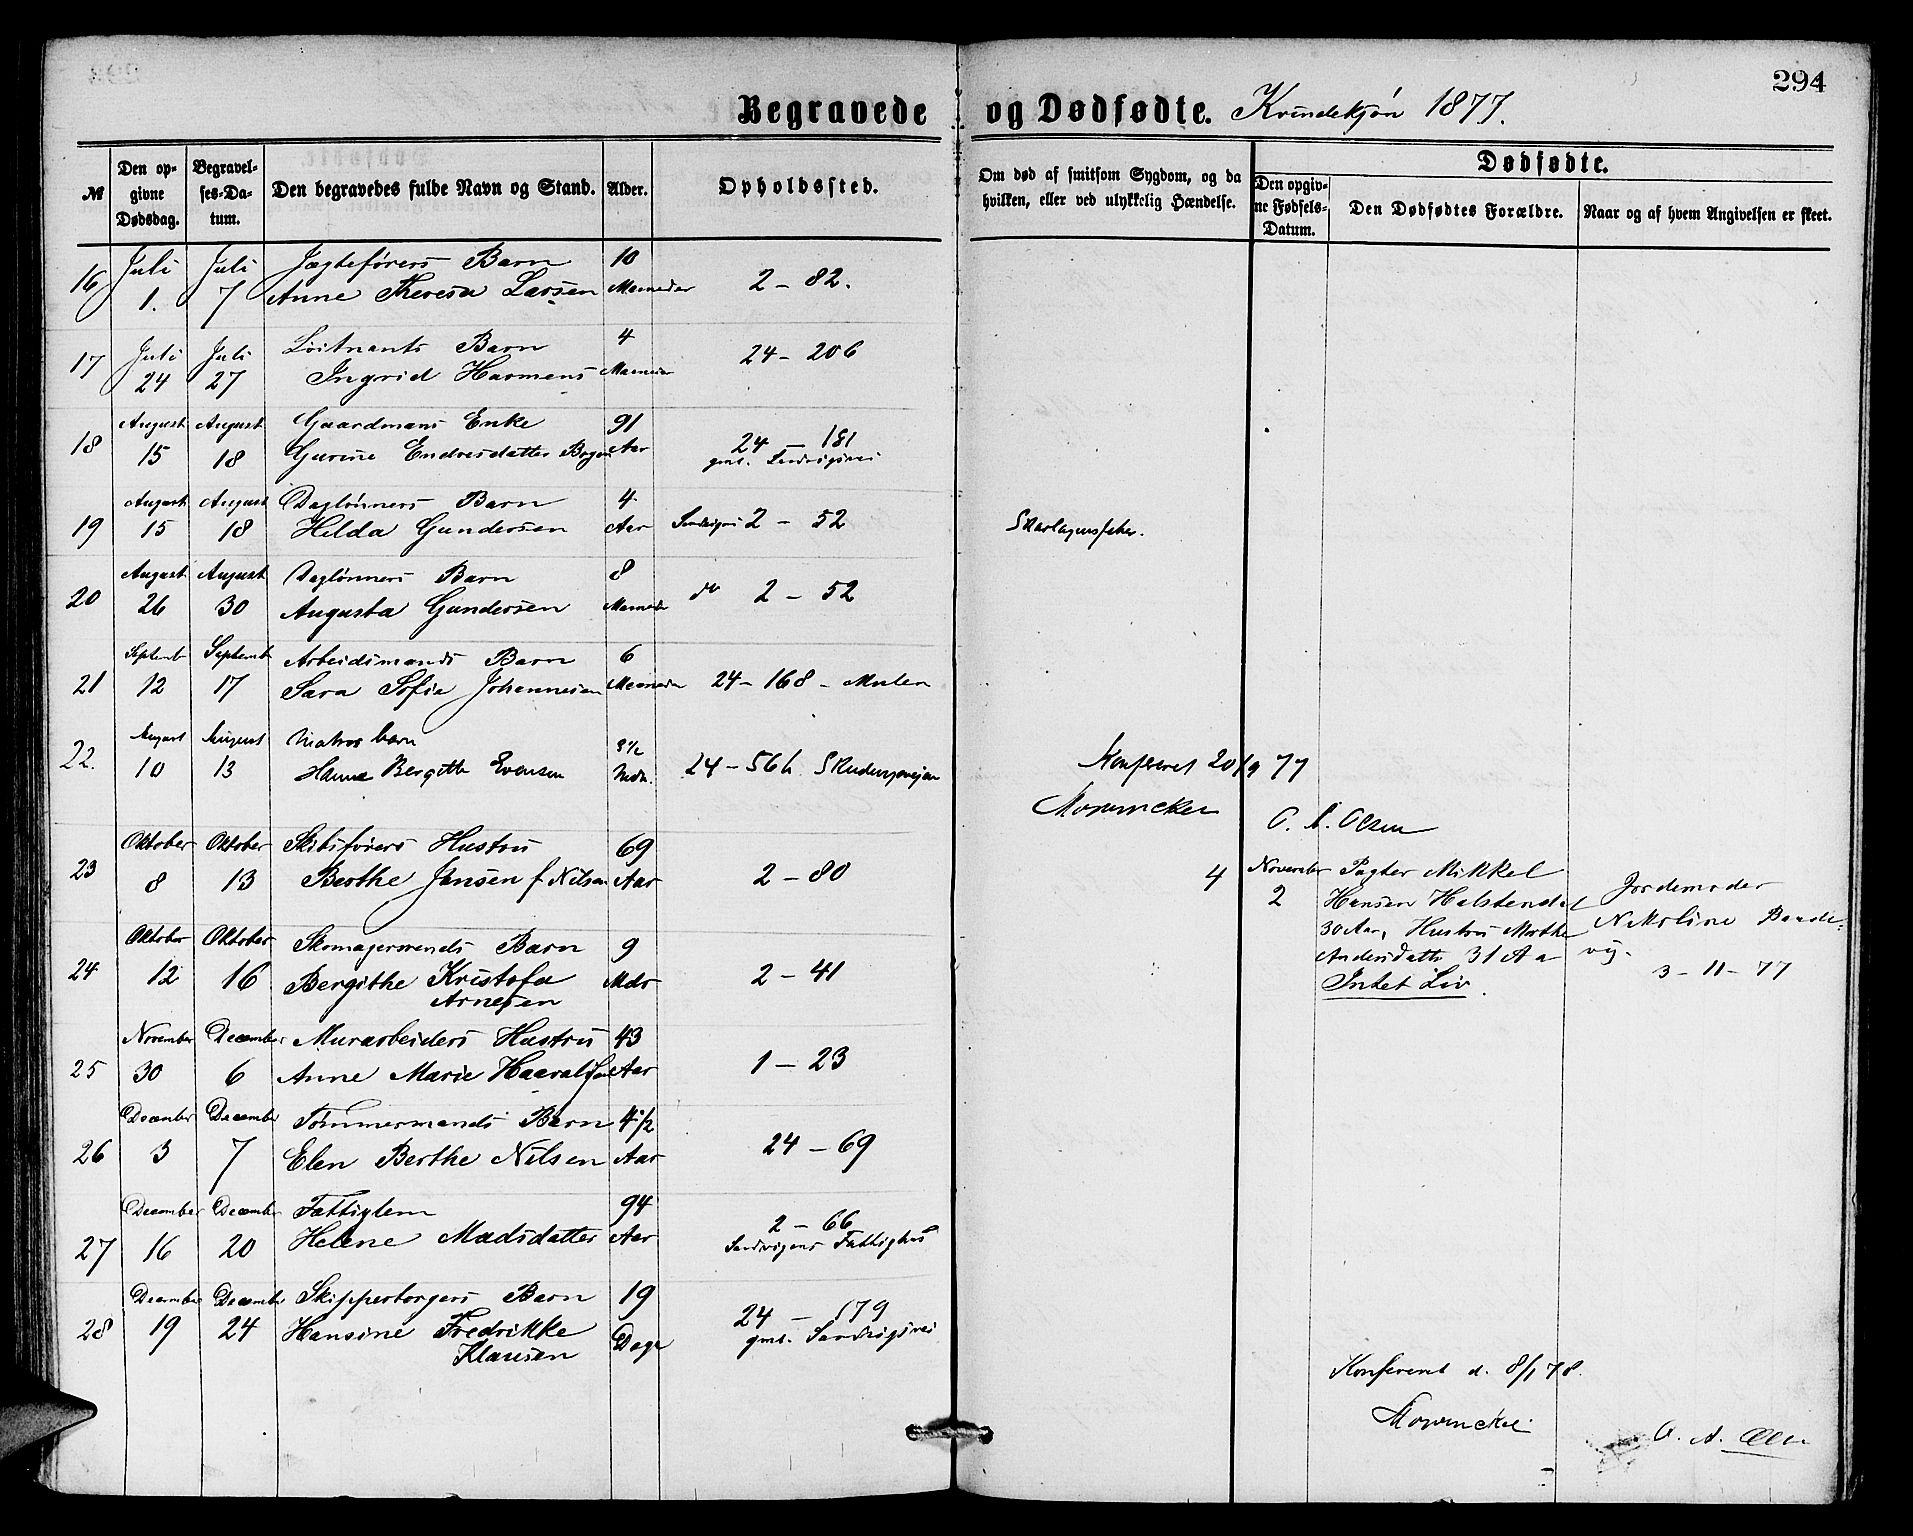 294
Begravede og Dødfødte. Kvindekjøn 1877.
№ | Den opgivne Dødsdag. | Begravelses-Datum. | Den begravedes fulde Navn og Stand. | Alder. | Opholdssted. | Om død af smitsom Sygdom, og da hvilken, eller ved ulykkelig Hændelse. | Dødfødte. | Den opgivne Fødsels-Datum. | Den Dødfødtes Forældre. | Naar og af hvem Angivelsen er skeet.
Juli Juli Jægtefører's Barn 10
16 1. 7 Anne Theresa Larsen Maaneder 2 – 82.
Juli Juli Løitnants Barn 4
17 24 27 Ingrid Harmens Maaneder 24 – 206
August August Gaardmans Enke 91
18 15 18 Gurine Endresdatter Aar 24 – 181
gml. Sandvigsvei
August August Daglønners Barn 4
19 15 18 Helda Gundersen Aar Sandvigs 2 – 52 Skarlagensfeber.
August August Daglønners Barn 8
20 26 30 Augusta Gundersen Maaneder do 2 – 52
Septembr Septembr Arbeidsmands Barn 6
21 12 17 Sara Sofie Johannesen Maaneder 24 – 168 – Mulen
August August Matros barn 8½
22. 10 13 Hanna Bergitte Evensen Mdr. 24 – 56 b.
Konfereret 20/9 77
Mowinckel
O. A. Olsen
Oktober Oktober Skibsførers Hustru 69
23 8 13 Berthe Jensen f Nilsen Aar 2 – 80
4 November Pagter Mikkel
2 Hansen Halstendal Jordemoder
30 Aar, Hustru Marthe Nikoline Baade-
Andersdatter 31 Aa vig.
Intet Liv. 3 – 11 – 77
Oktober Oktober Skomagersvends Barn 9
24 12 16 Bergithe Kristofa Mdr 2 – 41
Arnesen
November December Murarbeiders Hustru 43
25 30 6 Anne Marie Aar 1 – 23
December December Tømmermands Barn 4½
26 3 7 Elen Berthe Nilsen Aar 24 – 69
December December Fattiglem 94
27 16 20 Helene Madsdatter Aar 2 – 66
Sandvigens Fattighus
December December Skipperborgers Barn 19
28 19 24 Hansine Fredrikke Dage 24 – 179
Klausen gml. Sandvigsvei
Konfereret d. 8/1 78.
Mowinckel
O. A. Olsen